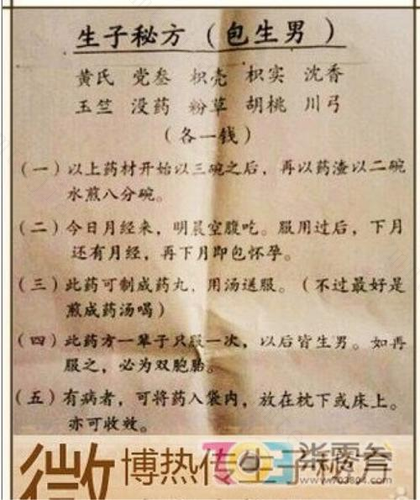 生子秘方（包生男）
黄氏 党叁 枳壳 枳实 沈香
玉竺 没药 粉草 胡桃 川弓
（各一钱）
（一）以上药材开始以三碗之后，再以药渣以二碗
水煎八分碗。
（二）今日月经来，明晨空腹吃。服用过后，下月
还有月经，再下月即包怀孕。
（三）此药可制成药丸，用汤送服。（不过最好是
煎成药汤喝）
（四）此药方一辈子只服一次，以后皆生男。如再
服之，必为双胞胎。
（五）有病者，可将药入袋内，放在枕下或床上。
亦可收效。
微博热传生子秘方
www.703804.com